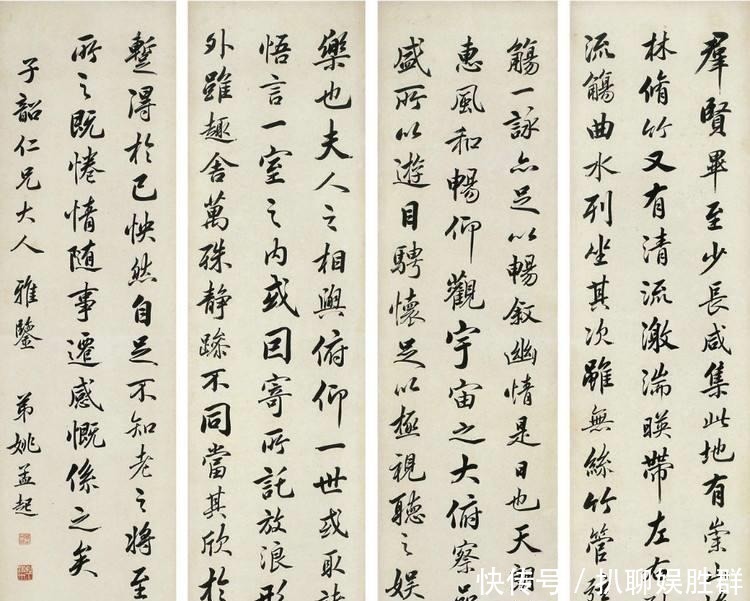 羣賢畢至少長咸集此地有崇
林脩竹又有清流激湍暎帶左右
流觴曲水列坐其次雖無絲竹管
觴一詠亦足以暢敘幽情是日也天
惠風和暢仰觀宇宙之大俯察品
盛所以遊目騁懷足以極視聽之娛
樂也夫人之相與俯仰一世或取諸
悟言一室之內或因寄所託放浪形
外雖趣舍萬殊静躁不同當其欣於
暫得於己怏然自足不知老之將至
所之既惓情随事遷感慨係之矣
子韶仁兄大人雅鑒 弟姚孟起
快传号/扒聊娱胜群